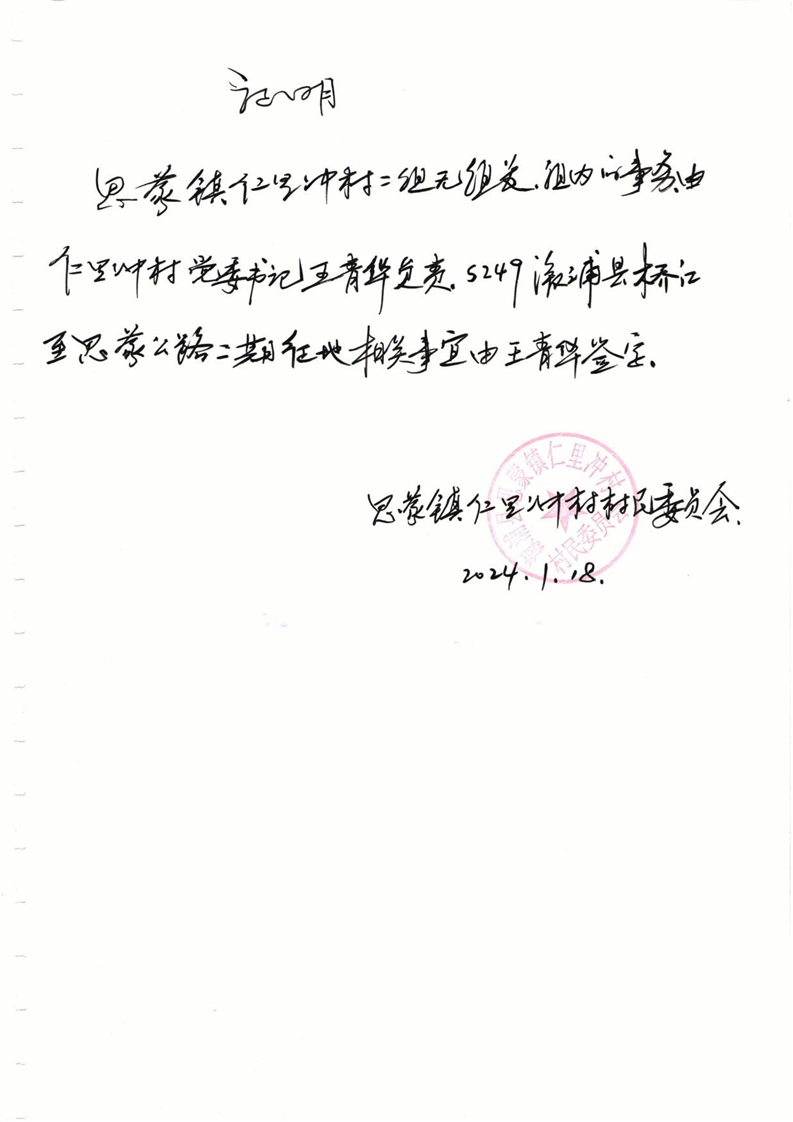 证明
思蒙镇仁里冲村二组无组长,组内的事务由
仁里冲村党委书记王青华负责.S249溆浦县桥江
至思蒙公路二期征地相关事宜由王青华签字.
思蒙镇仁里冲村村民委员会.
2024.1.18.
溆浦县思蒙镇仁里冲村
村民委员会